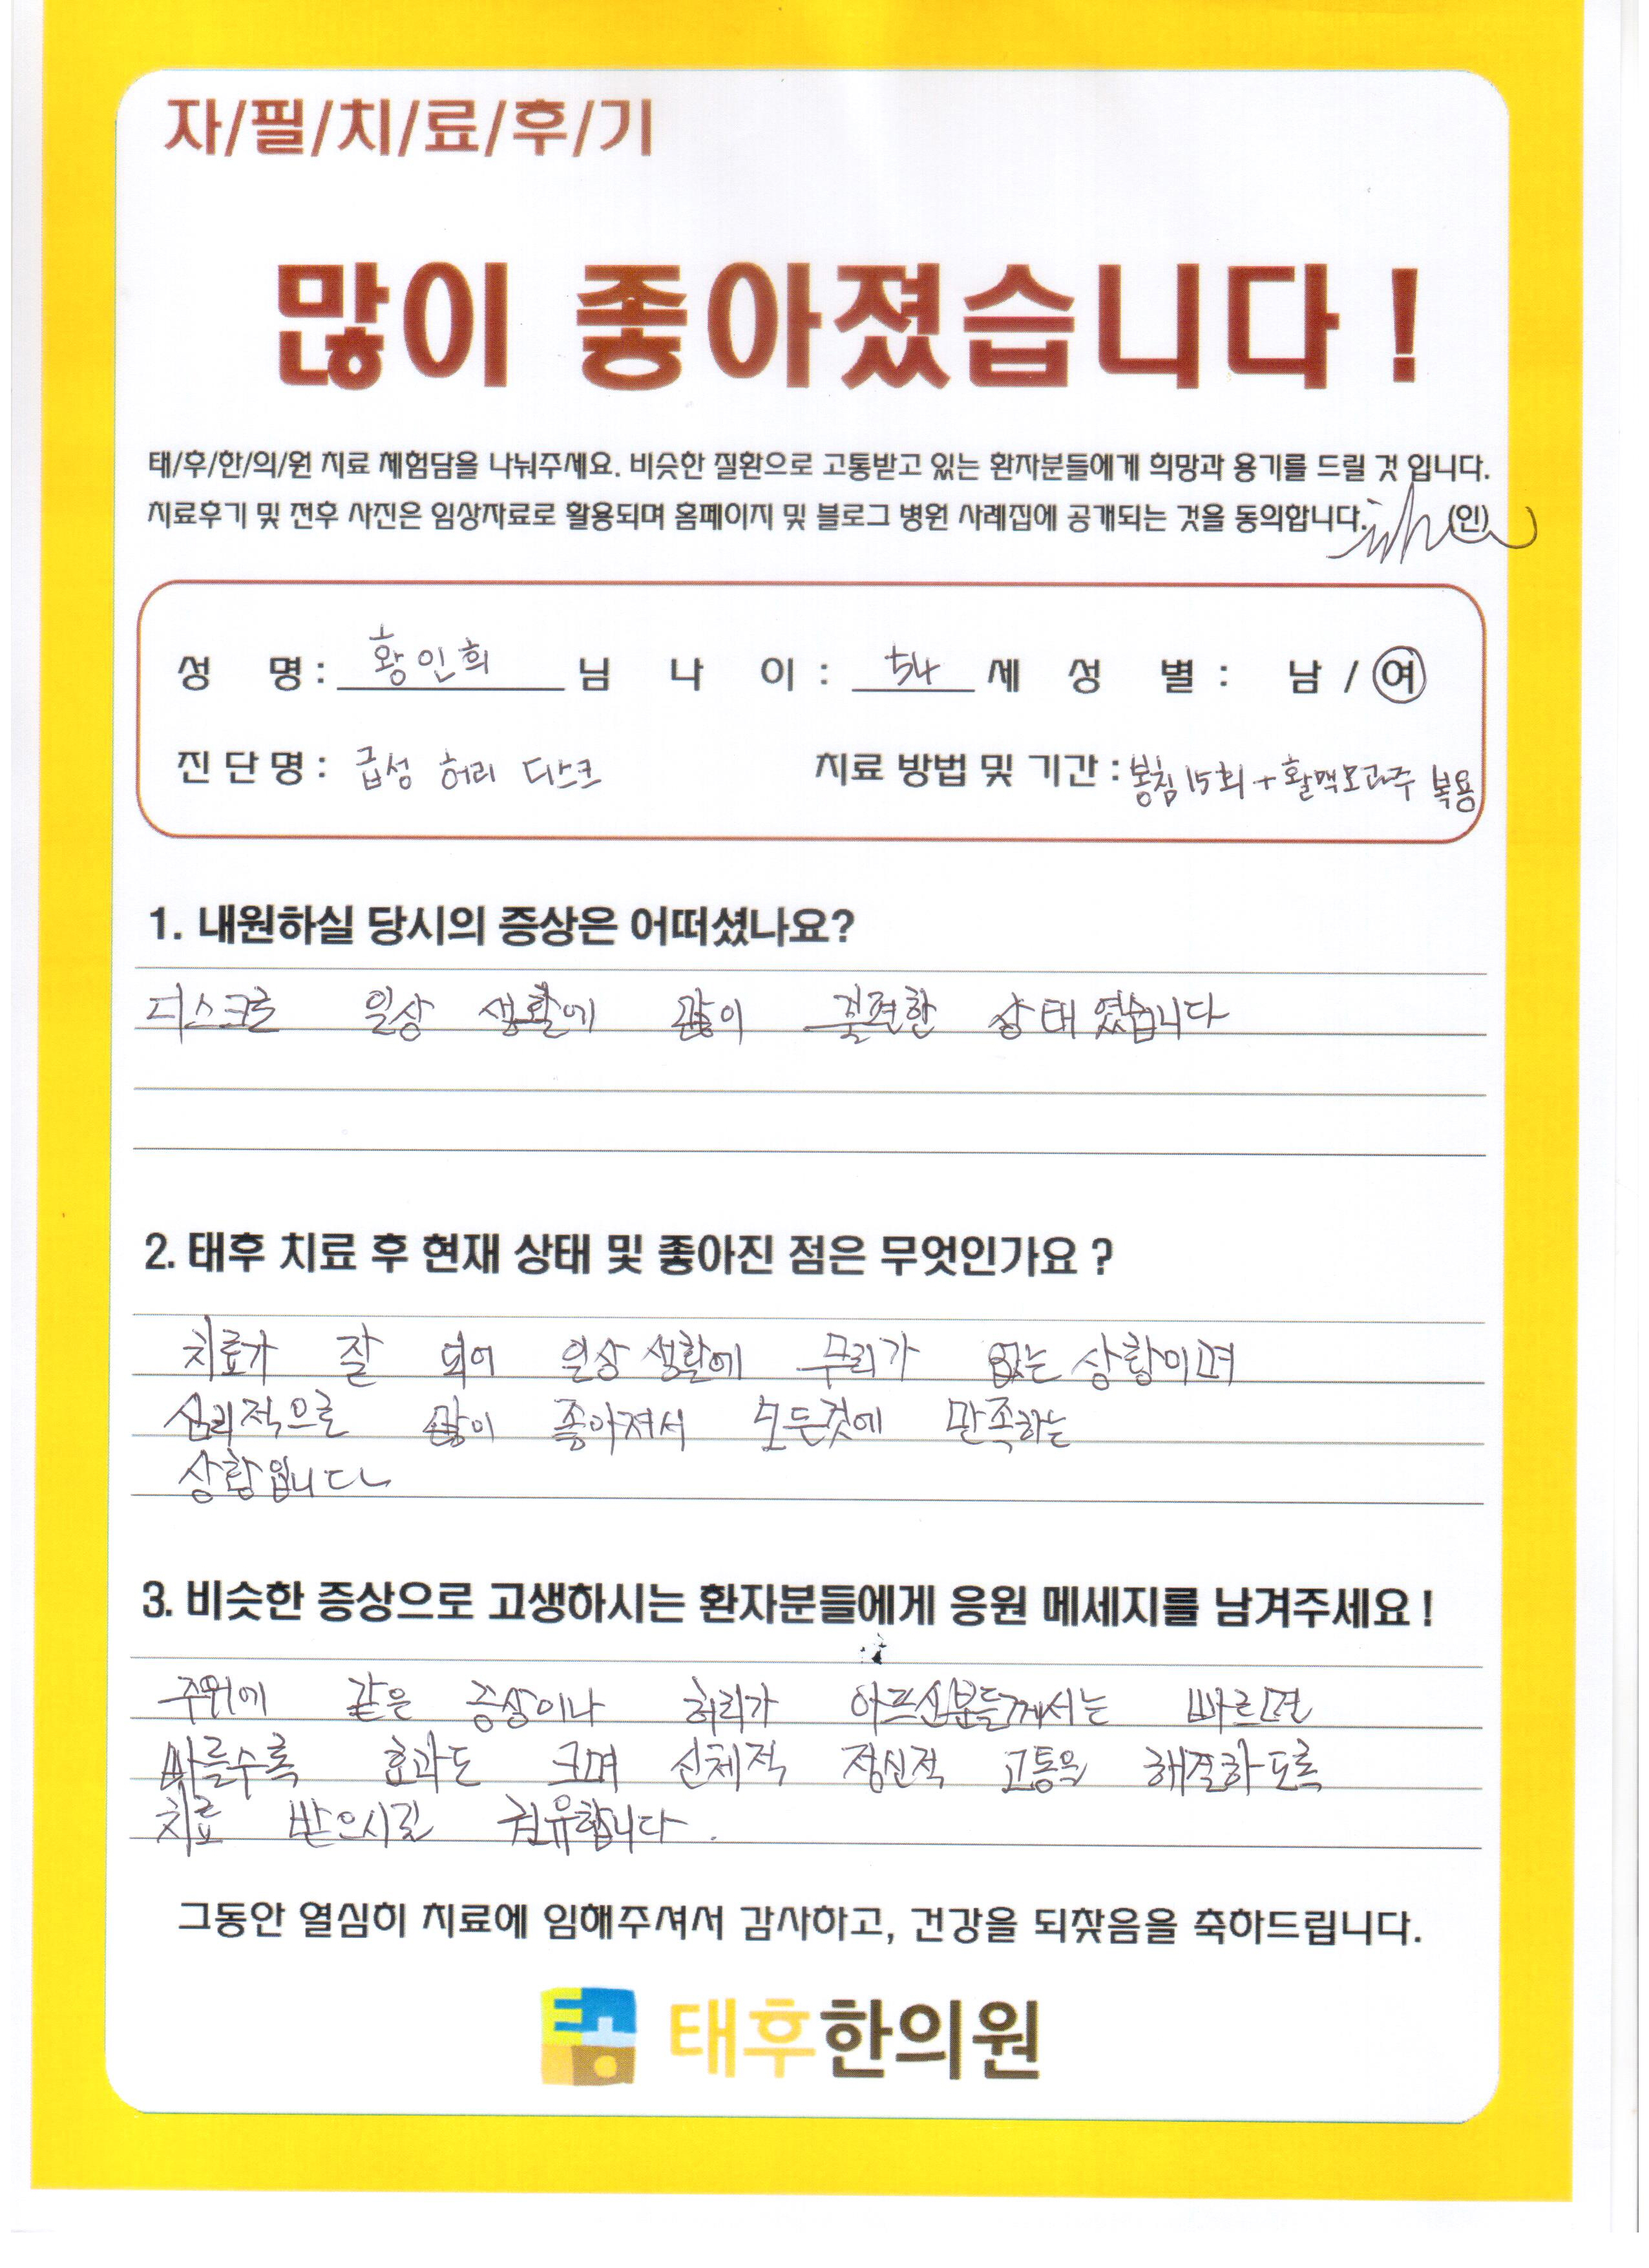 자/필/치/료/후/기
많이 좋아졌습니다 !
태/후/한/의/원 치료 체험담을 나눠주세요. 비슷한 질환으로 고통받고 있는 환자분들에게 희망과 용기를 드릴 것 입니다.
치료후기 및 전후 사진은 임상자료로 활용되며 홈페이지 및 블로그 병원 사례집에 공개되는 것을 동의합니다. (인)
성 명 : 황인희 님 나 이 : 54 세 성 별 : 남 / 여
진 단 명 : 급성 허리 디스크 치료 방법 및 기간 : 봉침 15회 + 활맥모과주 복용
1. 내원하실 당시의 증상은 어떠셨나요?
디스크로 일상 생활에 많이 불편한 상태였습니다
2. 태후 치료 후 현재 상태 및 좋아진 점은 무엇인가요 ?
치료가 잘 되어 일상 생활에 무리가 없는 상황이며
심리적으로 많이 좋아져서 모든것에 만족하는
상황입니다
3. 비슷한 증상으로 고생하시는 환자분들에게 응원 메세지를 남겨주세요 !
주위에 같은 증상이나 허리가 아프신분들께서는 빠르면
빠를수록 효과도 크며 신체적 정신적 고통을 해결하도록
치료 받으시길 권유합니다.
그동안 열심히 치료에 임해주셔서 감사하고, 건강을 되찾음을 축하드립니다.
태후한의원